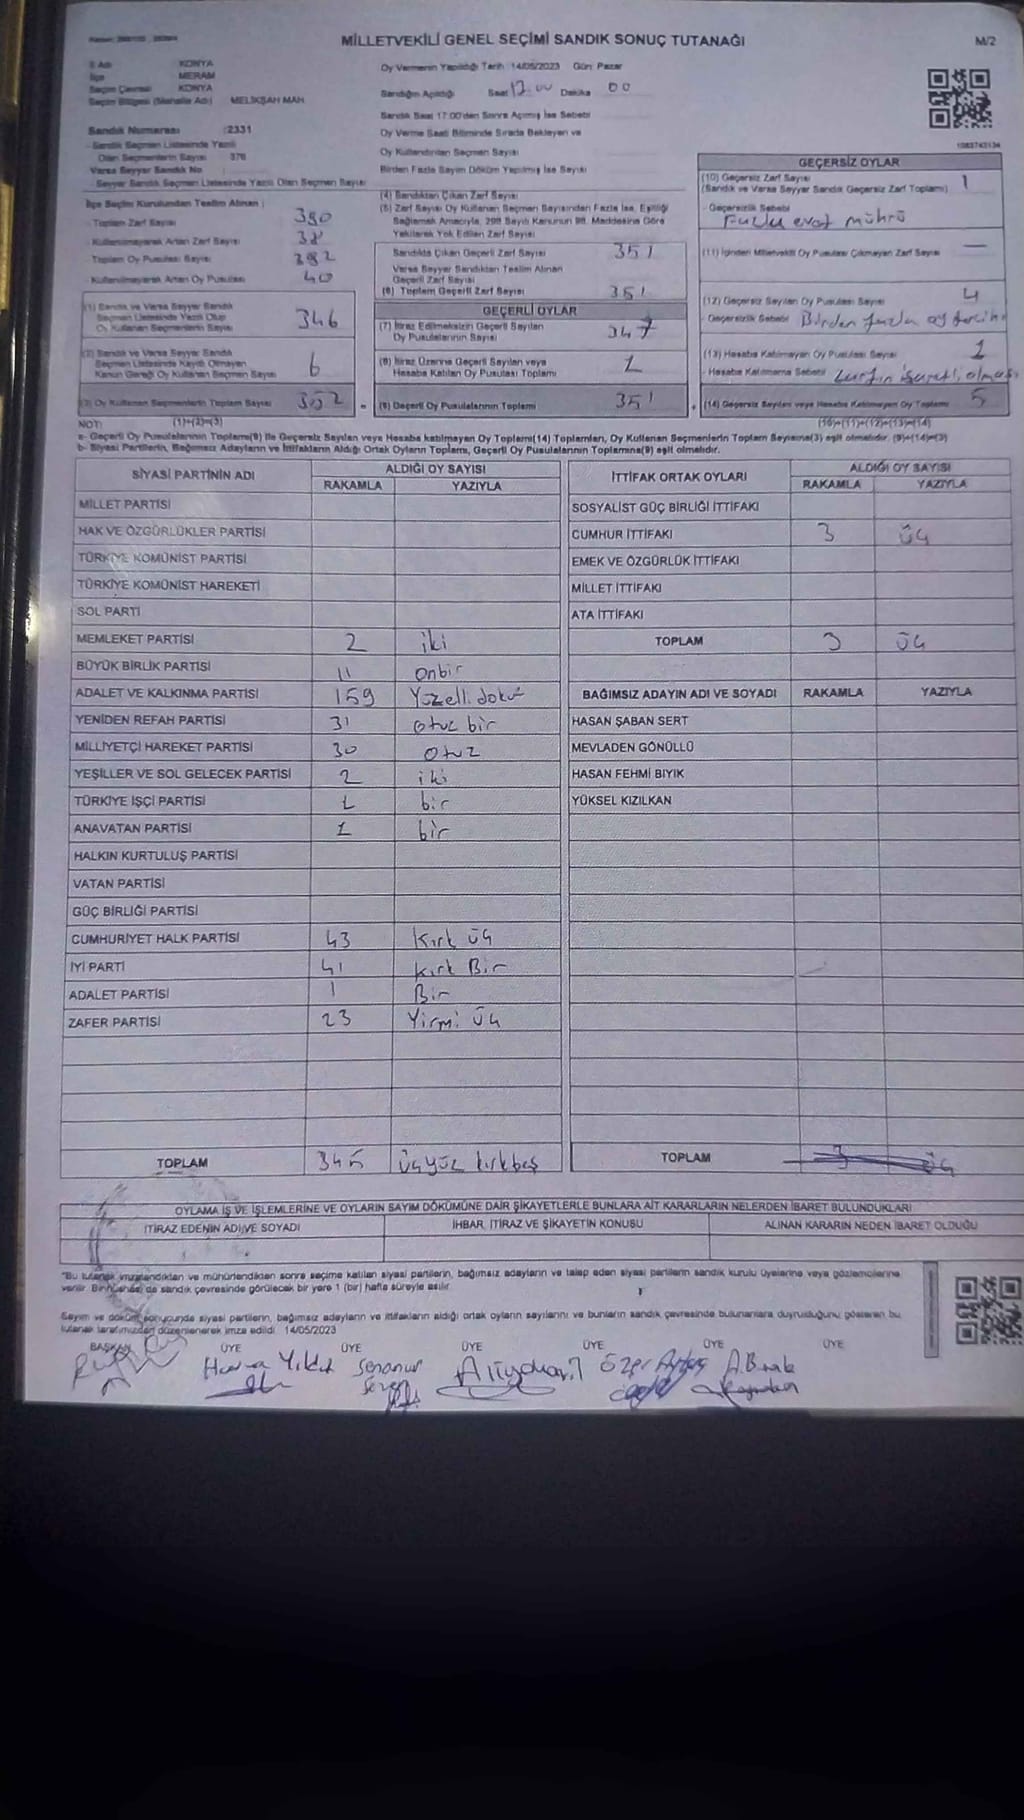 MİLLETVEKİLİ GENEL SEÇİMİ SANDIK SONUÇ TUTANAĞI
M/2
İl Adı KONYA
İlçe MERAM
Seçim Çevresi KONYA
Seçim Bölgesi (Mahalle Adı) MELİKŞAH MAH.
Sandık Numarası : 2331
- Sandık Seçmen Listesinde Yazılı
Olan Seçmenlerin Sayısı 376
Varsa Seyyar Sandık No :
- Seyyar Sandık Seçmen Listesinde Yazılı Olan Seçmen Sayısı
İlçe Seçim Kurulundan Teslim Alınan ;
- Toplam Zarf Sayısı 390
- Kullanılmayarak Artan Zarf Sayısı 38
- Toplam Oy Pusulası Sayısı 392
- Kullanılmayarak Artan Oy Pusulası 40
(1) Sandık ve Varsa Seyyar Sandık
Seçmen Listesinde Yazılı Olup
Oy Kullanan Seçmenlerin Sayısı 346
(2) Sandık ve Varsa Seyyar Sandık
Seçmen Listesinde Kayıtlı Olmayan
Kanun Gereği Oy Kullanan Seçmen Sayısı 6
(3) Oy Kullanan Seçmenlerin Toplam Sayısı 352
(1)+(2)=(3)
Oy Vermenin Yapıldığı Tarih 14/05/2023 Gün: Pazar
Sandığın Açıldığı Saat 17.00 Dakika 00
Sandık Saat 17:00'den Sonra Açımış İse Sebebi
Oy Verme Saati Bitiminde Sırada Bekleyen ve
Oy Kullandırılan Seçmen Sayısı
Birden Fazla Sayım Döküm Yapılmış İse Sayısı
(4) Sandıktan Çıkan Zarf Sayısı
(5) Zarf Sayısı Oy Kullanan Seçmen Sayısından Fazla İse, Eşitliği
Sağlamak Amacıyla, 298 Sayılı Kanunun 98. Maddesine Göre
Yakılarak Yok Edilen Zarf Sayısı
Sandıkta Çıkan Geçerli Zarf Sayısı 351
Varsa Seyyar Sandıktan Teslim Alınan
Geçerli Zarf Sayısı
(6) Toplam Geçerli Zarf Sayısı 351
GEÇERLİ OYLAR
(7) İtiraz Edilmeksizin Geçerli Sayılan
Oy Pusulalarının Sayısı 347
(8) İtiraz Üzerine Geçerli Sayılan veya
Hesaba Katılan Oy Pusulası Toplamı 1
(9) Geçerli Oy Pusulalarının Toplamı 351
GEÇERSİZ OYLAR
(10) Geçersiz Zarf Sayısı 1
(Sandık ve Varsa Seyyar Sandık Geçersiz Zarf Toplamı)
- Geçersizlik Sebebi
Fazla evet mührü
(11) İçinden Milletvekili Oy Pusulası Çıkmayan Zarf Sayısı —
(12) Geçersiz Sayılan Oy Pusulası Sayısı 4
- Geçersizlik Sebebi Birden fazla oy tercihi
(13) Hesaba Katılmayan Oy Pusulası Sayısı 1
- Hesaba Katılmama Sebebi Zarfın işaretli olması
(14) Geçersiz Sayılan veya Hesaba Katılmayan Oy Toplamı 5
(10)+(11)+(12)+(13)=(14)
NOT:
a- Geçerli Oy Pusulalarının Toplamı(9) ile Geçersiz Sayılan veya Hesaba katılmayan Oy Toplamı(14) Toplamları, Oy Kullanan Seçmenlerin Toplam Sayısına(3) eşit olmalıdır. (9)+(14)=(3)
b- Siyasi Partilerin, Bağımsız Adayların ve İttifakların Aldığı Ortak Oyların Toplamı, Geçerli Oy Pusulalarının Toplamına(9) eşit olmalıdır.
SİYASİ PARTİNİN ADI ALDIĞI OY SAYISI
RAKAMLA YAZIYLA
MİLLET PARTİSİ
HAK VE ÖZGÜRLÜKLER PARTİSİ
TÜRKİYE KOMÜNİST PARTİSİ
TÜRKİYE KOMÜNİST HAREKETİ
SOL PARTİ
MEMLEKET PARTİSİ 2 iki
BÜYÜK BİRLİK PARTİSİ 11 onbir
ADALET VE KALKINMA PARTİSİ 159 Yüzelli dokuz
YENİDEN REFAH PARTİSİ 31 otuz bir
MİLLİYETÇİ HAREKET PARTİSİ 30 otuz
YEŞİLLER VE SOL GELECEK PARTİSİ 2 iki
TÜRKİYE İŞÇİ PARTİSİ 1 bir
ANAVATAN PARTİSİ 1 bir
HALKIN KURTULUŞ PARTİSİ
VATAN PARTİSİ
GÜÇ BİRLİĞİ PARTİSİ
CUMHURİYET HALK PARTİSİ 43 Kırk üç
İYİ PARTİ 41 kırk Bir
ADALET PARTİSİ 1 Bir
ZAFER PARTİSİ 23 Yirmi üç
TOPLAM 345 üçyüz kırkbeş
İTTİFAK ORTAK OYLARI ALDIĞI OY SAYISI
RAKAMLA YAZIYLA
SOSYALİST GÜÇ BİRLİĞİ İTTİFAKI
CUMHUR İTTİFAKI 3 üç
EMEK VE ÖZGÜRLÜK İTTİFAKI
MİLLET İTTİFAKI
ATA İTTİFAKI
TOPLAM 3 üç
BAĞIMSIZ ADAYIN ADI VE SOYADI RAKAMLA YAZIYLA
HASAN ŞABAN SERT
MEVLADEN GÖNÜLLÜ
HASAN FEHMİ BIYIK
YÜKSEL KIZILKAN
TOPLAM 3 üç
OYLAMA İŞ VE İŞLEMLERİNE VE OYLARIN SAYIM DÖKÜMÜNE DAİR ŞİKAYETLERLE BUNLARA AİT KARARLARIN NELERDEN İBARET BULUNDUKLARI
İTİRAZ EDENİN ADI VE SOYADI İHBAR, İTİRAZ VE ŞİKAYETİN KONUSU ALINAN KARARIN NEDEN İBARET OLDUĞU
"Bu tutanak imzalandıktan ve mühürlendikten sonra seçime katılan siyasi partilerin, bağımsız adayların ve talep eden siyasi partilerin sandık kurulu üyelerine veya gözlemcilerine
verilir. Bir nüshası da sandık çevresinde görülecek bir yere 1 (bir) hafta süreyle asılır.
Sayım ve döküm sonucunda siyasi partilerin, bağımsız adayların ve ittifakların aldığı ortak oyların sayılarını ve bunların sandık çevresinde bulunanlara duyrulduğunu gösteren bu
tutanak tarafımızdan düzenlenerek imza edildi. 14/05/2023
BAŞKAN ÜYE ÜYE ÜYE ÜYE ÜYE ÜYE